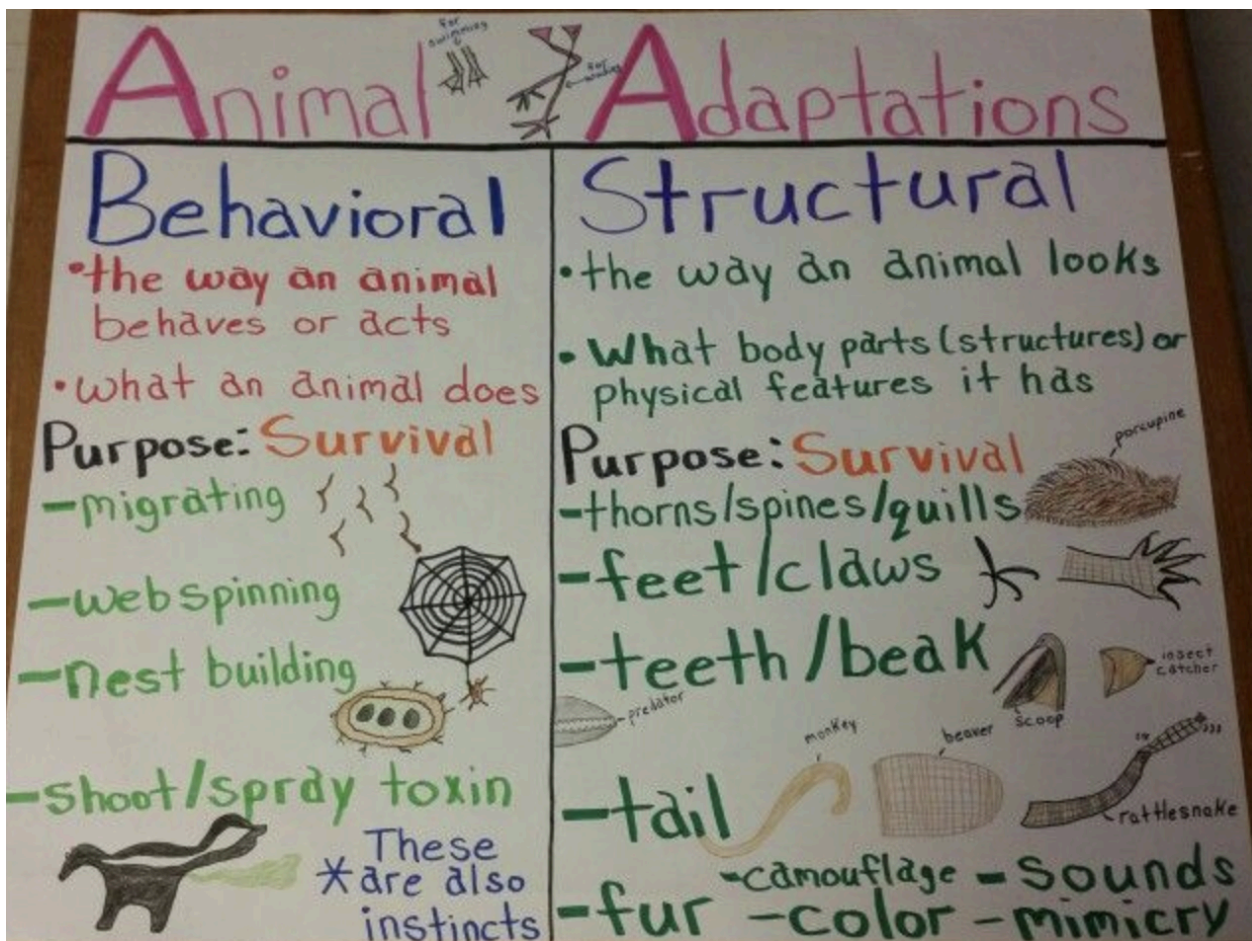 Animal Adaptations
for
swimming
for
wading
Behavioral
•the way an animal
behaves or acts
•what an animal does
Purpose: Survival
-migrating
-web spinning
-nest building
-shoot/spray toxin
These
*are also
instincts
Structural
•the way an animal looks
•What body parts (structures) or
physical features it has
Purpose: Survival
porcupine
-thorns/spines/quills
-feet/claws
-teeth/beak
insect
catcher
scoop
predator
monkey
beaver
-tail
rattlesnake
-camouflage -sounds
-fur -color -mimicry